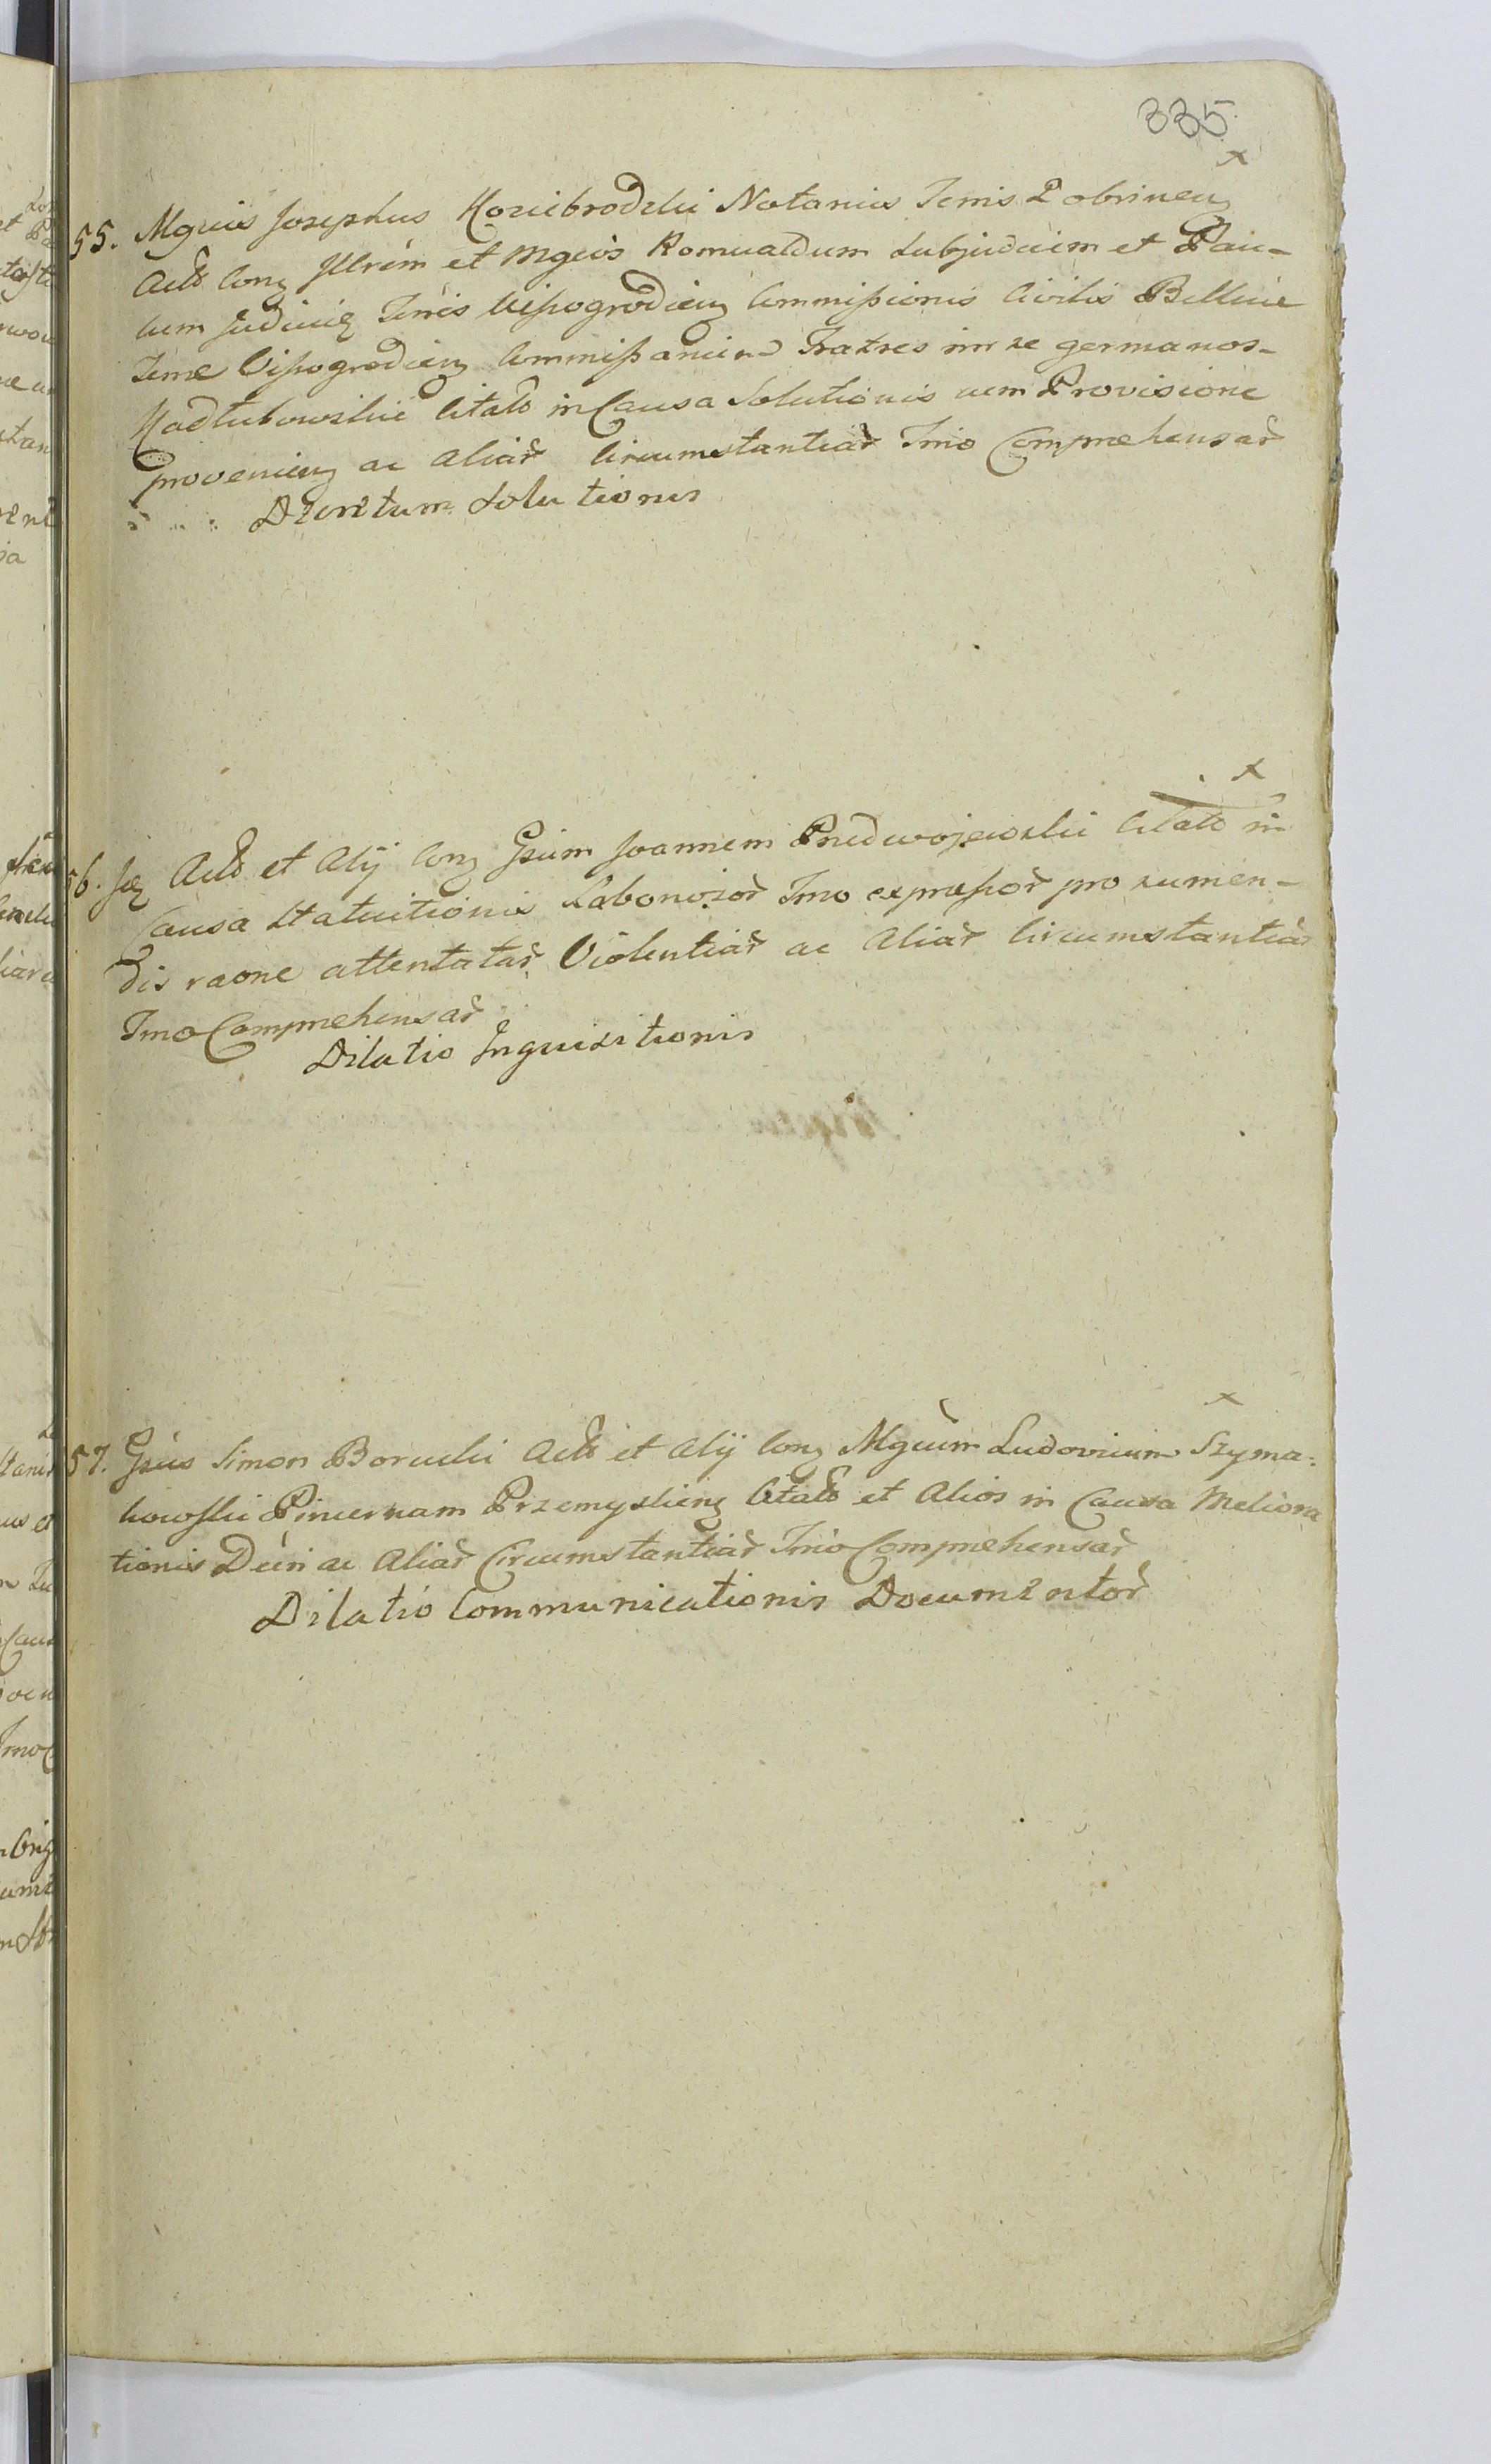 335
55. Mgcus Josephus Koziebrodzki Notarius Terris Dobrinen
Actor Con Illrem et Mgcos Romualdum Subjudicem et Pau-
lum Judicis Terris Vissogrodien Commissionis Civilis Bellicae
Terrae Vissogrodien Commissarium Fratres inr se germanos-
Kadłubowskie Citato in Causa Solutionis cum Provisione
provenien ac aliar circumstantiar Tmo Comprehensar
Decretum Solutionis
56. Actor et Alij Con Gsum Joannem Przedwojewski Citato in
Causa Statuitionis Laboriosor Tmo expressor pro sumen-
dis raone attentatar Violentiar ac aliar circumstantiar
Tmo Comprehensar
Dilatio Inquisitionis
57. Gsus Simon Borucki Actor et Alij Con Mgcum Ludovicum Szyma:
kowski Pincernam Przemyslien Citato et Alios in Causa Meliora
tionis Decri ac Aliar Circumstantiar Tmo Comprehensar
Dilatio Communicationis Documentor